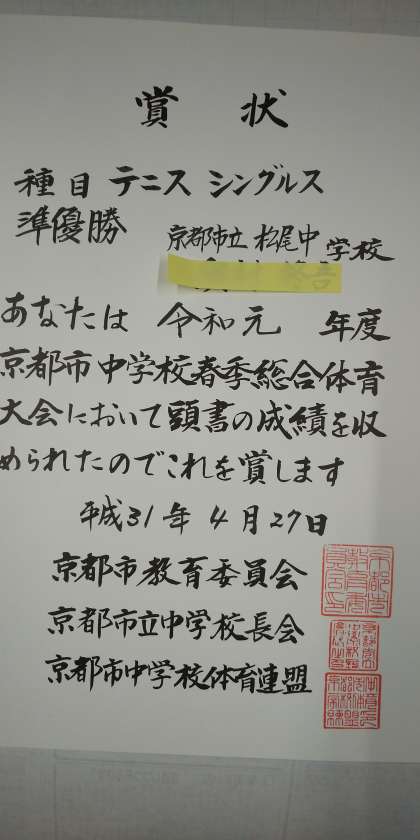 賞 状
種目 テニス シングルス
準優勝
京都市立 松尾中 学校
あなたは 令和元 年度
京都市中学校春季総合体育
大会において頭書の成績を収
められたのでこれを賞します
平成31年 4月27日
京都市教育委員会
京都市立中学校長会
京都市中学校体育連盟